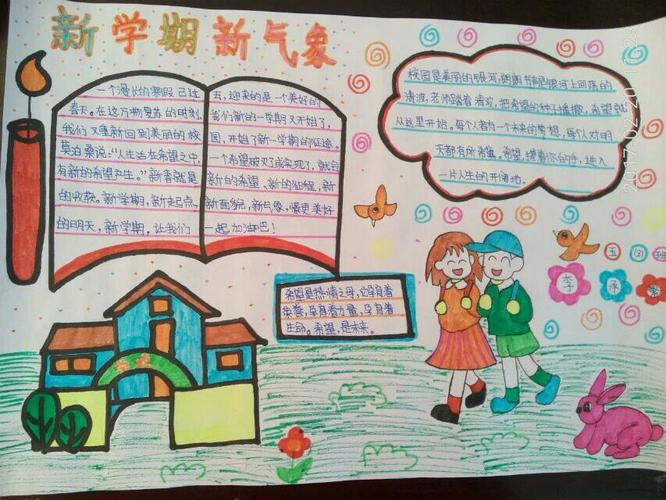 新学期新气象
一个漫长的寒假已过
春天。在这万物复苏的时刻
我们又重新回到美丽的校
莫泊桑说:“人生活在希望之中
有新的希望产生。”新春就是
的收获。新学期,新起点
的明天,新学期,让我们
迎来的是一个美好的
新的一学期又开始了
园,开始了新一学期的征途。
一个希望破灭或实现了,就会
新的希望、新的征程,新
新面貌,新气象,更美好
一起加油吧!
校园是美丽的银河,朗朗书声是银河上回荡的
清波,老师踏着清波,把希望的种子播撒,希望
从这里开始。每个人都有一个未来的梦想,每个人对明
天都有所希冀。希望,撑着你的舟,进入
一片人生的开阔地。
希望是热情之母,它孕育着
荣誉,孕育着力量,孕育着
生命。希望,是未来。
五(2)班
李